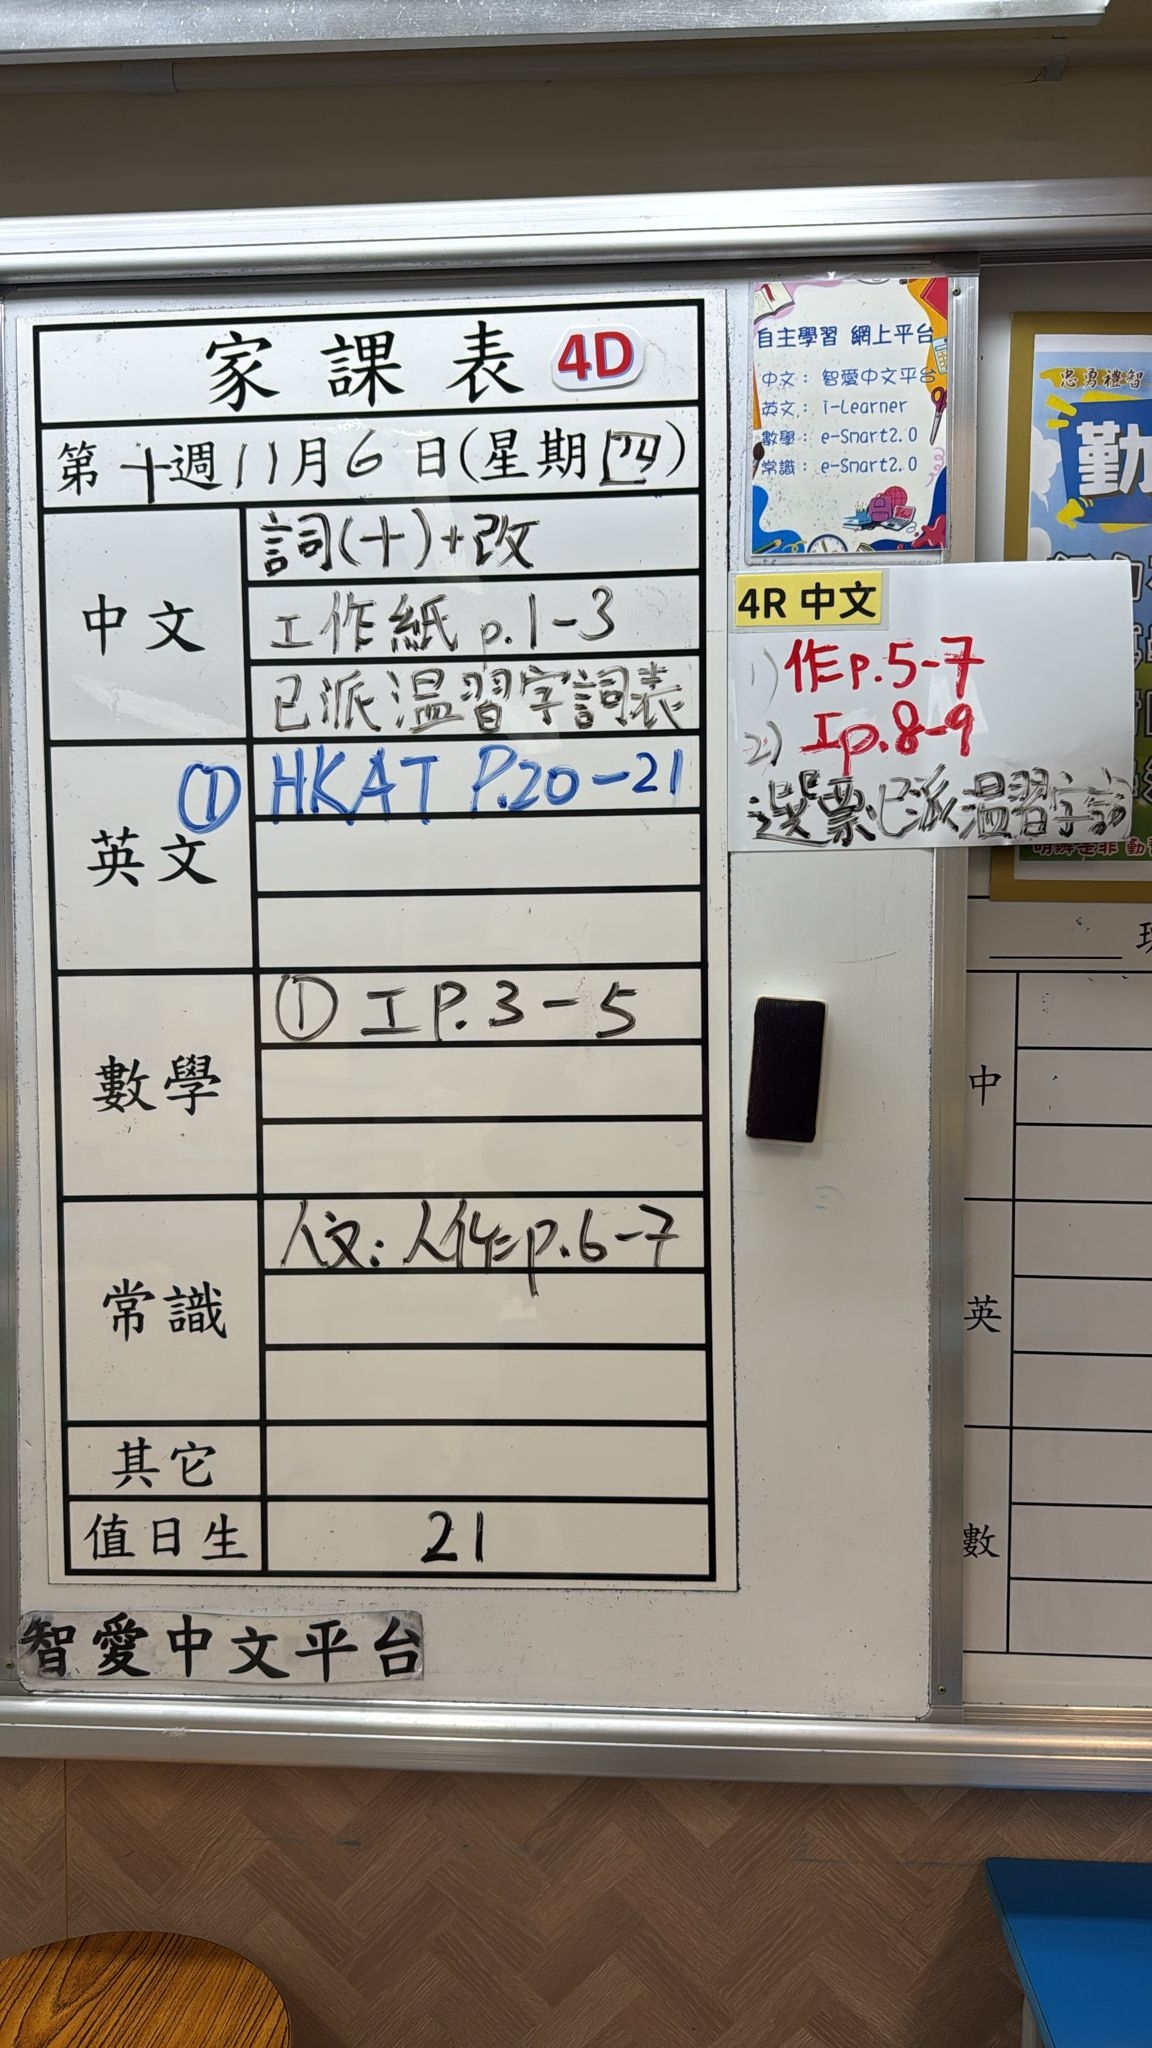 家課表 4D
第十週11月6日(星期四)
中文
詞(十)+改
工作紙 p.1-3
已派溫習字詞表
英文
① HKAT P.20-21
數學
① 工P.3-5
常識
人文:人作p.6-7
其它
值日生 21
智愛中文平台
自主學習 網上平台
中文: 智愛中文平台
英文: i-Learner
數學: e-Smart2.0
常識: e-Smart2.0
4R 中文
1) 作p.5-7
2) 工p.8-9
選票已派溫習字詞
忠勇禮智
勤
明辨是非 勤
中
英
數